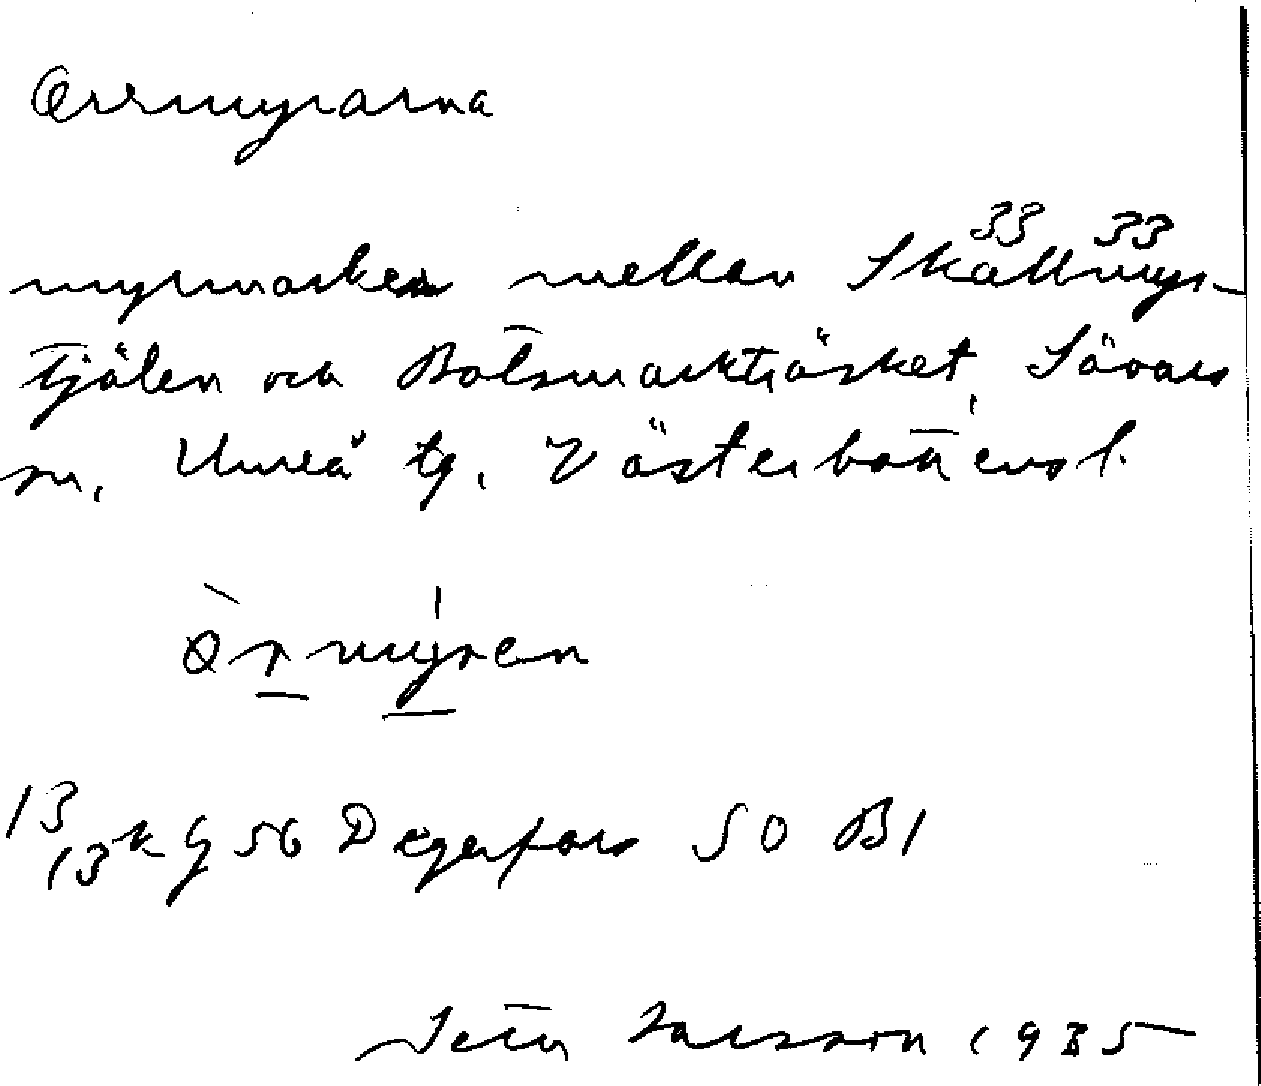 Orrmyrarna
33 33
myrmarken mellan Skallmyr-
tjälen och Botsmarkträsket, Sävars
sn, Umeå tg, Västerbottens l.
orrmyren
13
13k G 56 Degerfors SO B1
Larsson 1935